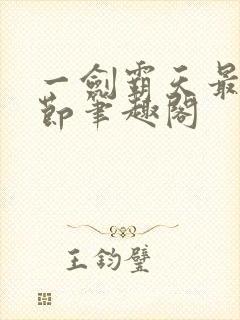 一劍霸天最
節筆趣閣
王鈞璧